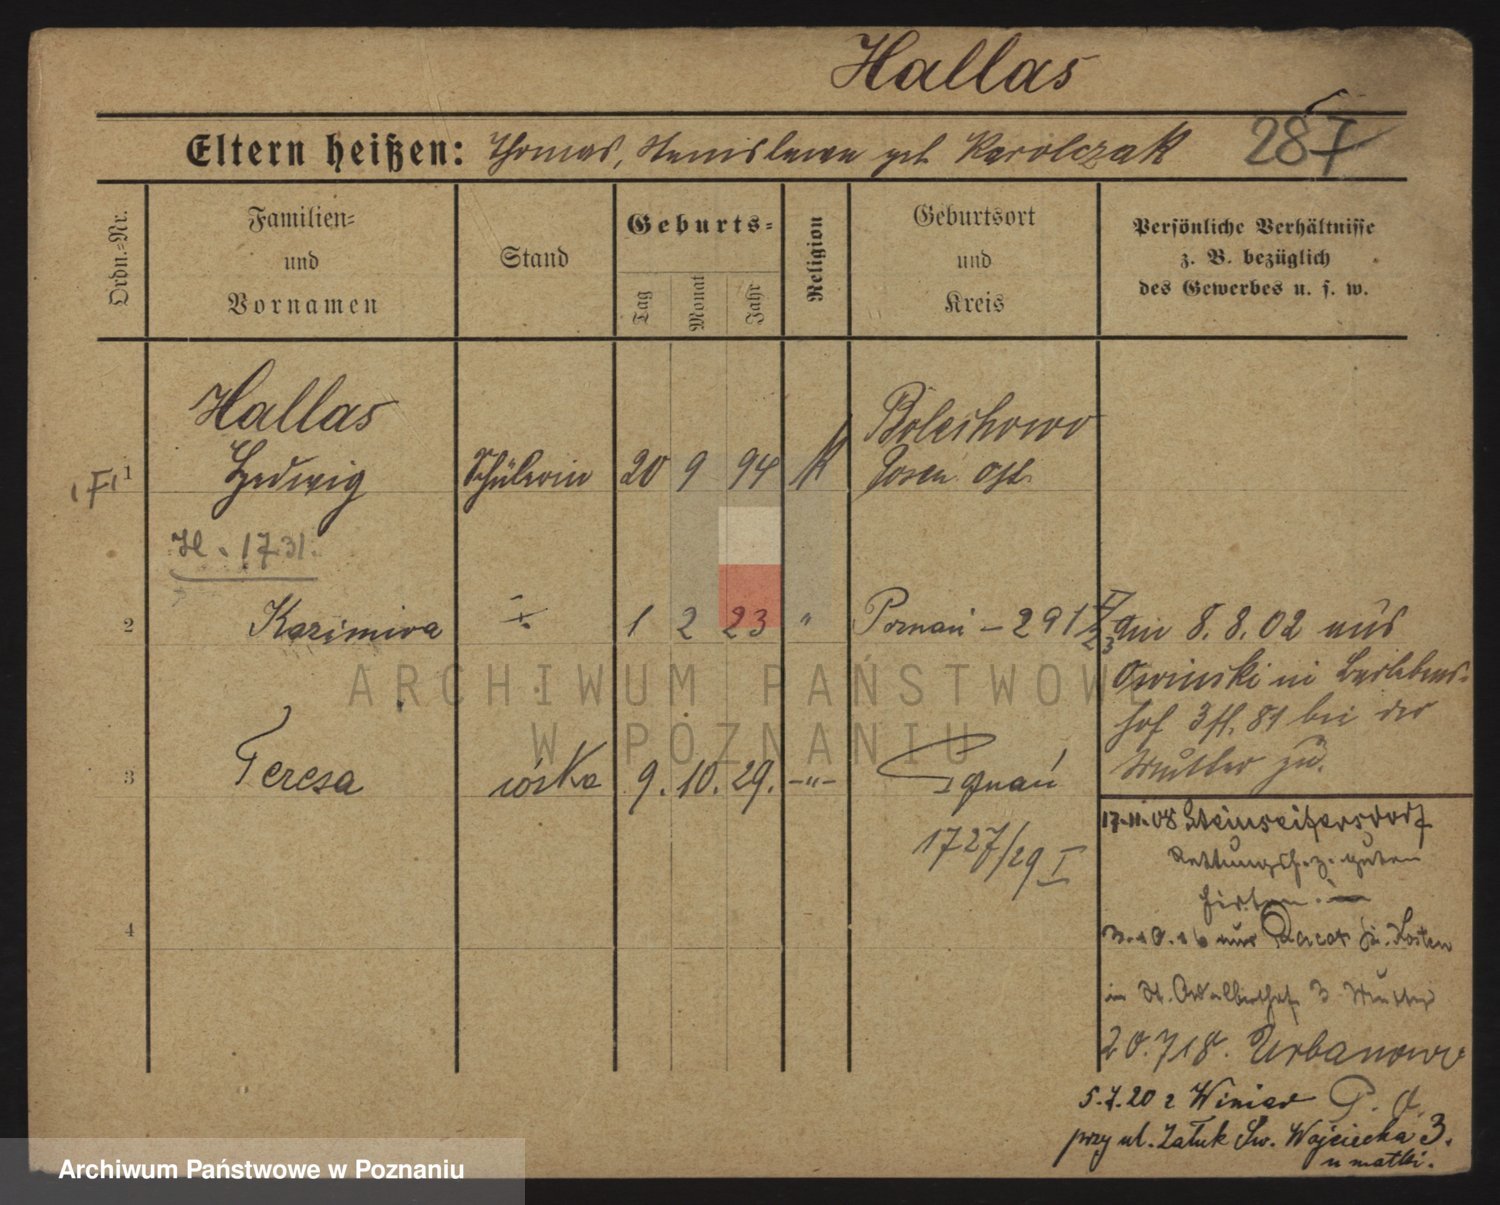 Hallas
Eltern heißen: Thomas, Stanislawa geb Karolczak 287
Ordn.=Nr.
Familien=
und
Vornamen
Stand
Geburts=
Tag
Monat
Jahr
Religion
Geburtsort
und
Kreis
Persönliche Verhältnisse
z. B. bezüglich
des Gewerbes u. s. w.
Hallas
1 Hedwig Schülerin 20 9 94 K Bolechowo
Posen Ost
H. 1731.
2 Kazimira 1 2 23 " Poznań - 291
am 8. 8. 02 aus
Owinski in
hof 3 bei der
Mutter zu.
3 Teresa córka 9. 10. 29. -"- Poznań
1727/29 I
17.11.08 Steinseifersdorf
Rettungsh. z. guten
Hirten.
4
3.10.16 aus Racot Kr. Kosten
in St. Adalbertstr. 3 Mutter
20.7 18. Urbanowo
5.7.20 z Winiar P. O.
przy ul. Zaułk Św. Wojciecha 3.
u matki.
ARCHIWUM PAŃSTWOWE
W POZNANIU
Archiwum Państwowe w Poznaniu